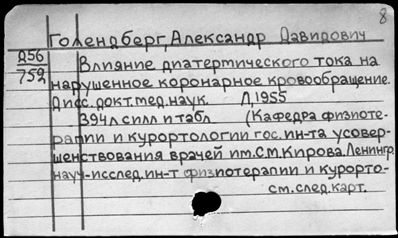 8
Голендберг, Александр Давидович
Д56
759
Влияние диатермического тока на
нарушенное коронарное кровообращение.
Дисс. докт. мед. наук. Л, 1955
394л. с илл и табл (Кафедра физпоте-
рапии и курортологии гос. ин-та усовер-
шенствования врачей им. С.М. Кирова. Ленингр.
науч-исслед. ин-т физпотерапии и курорто-
см. след. карт.